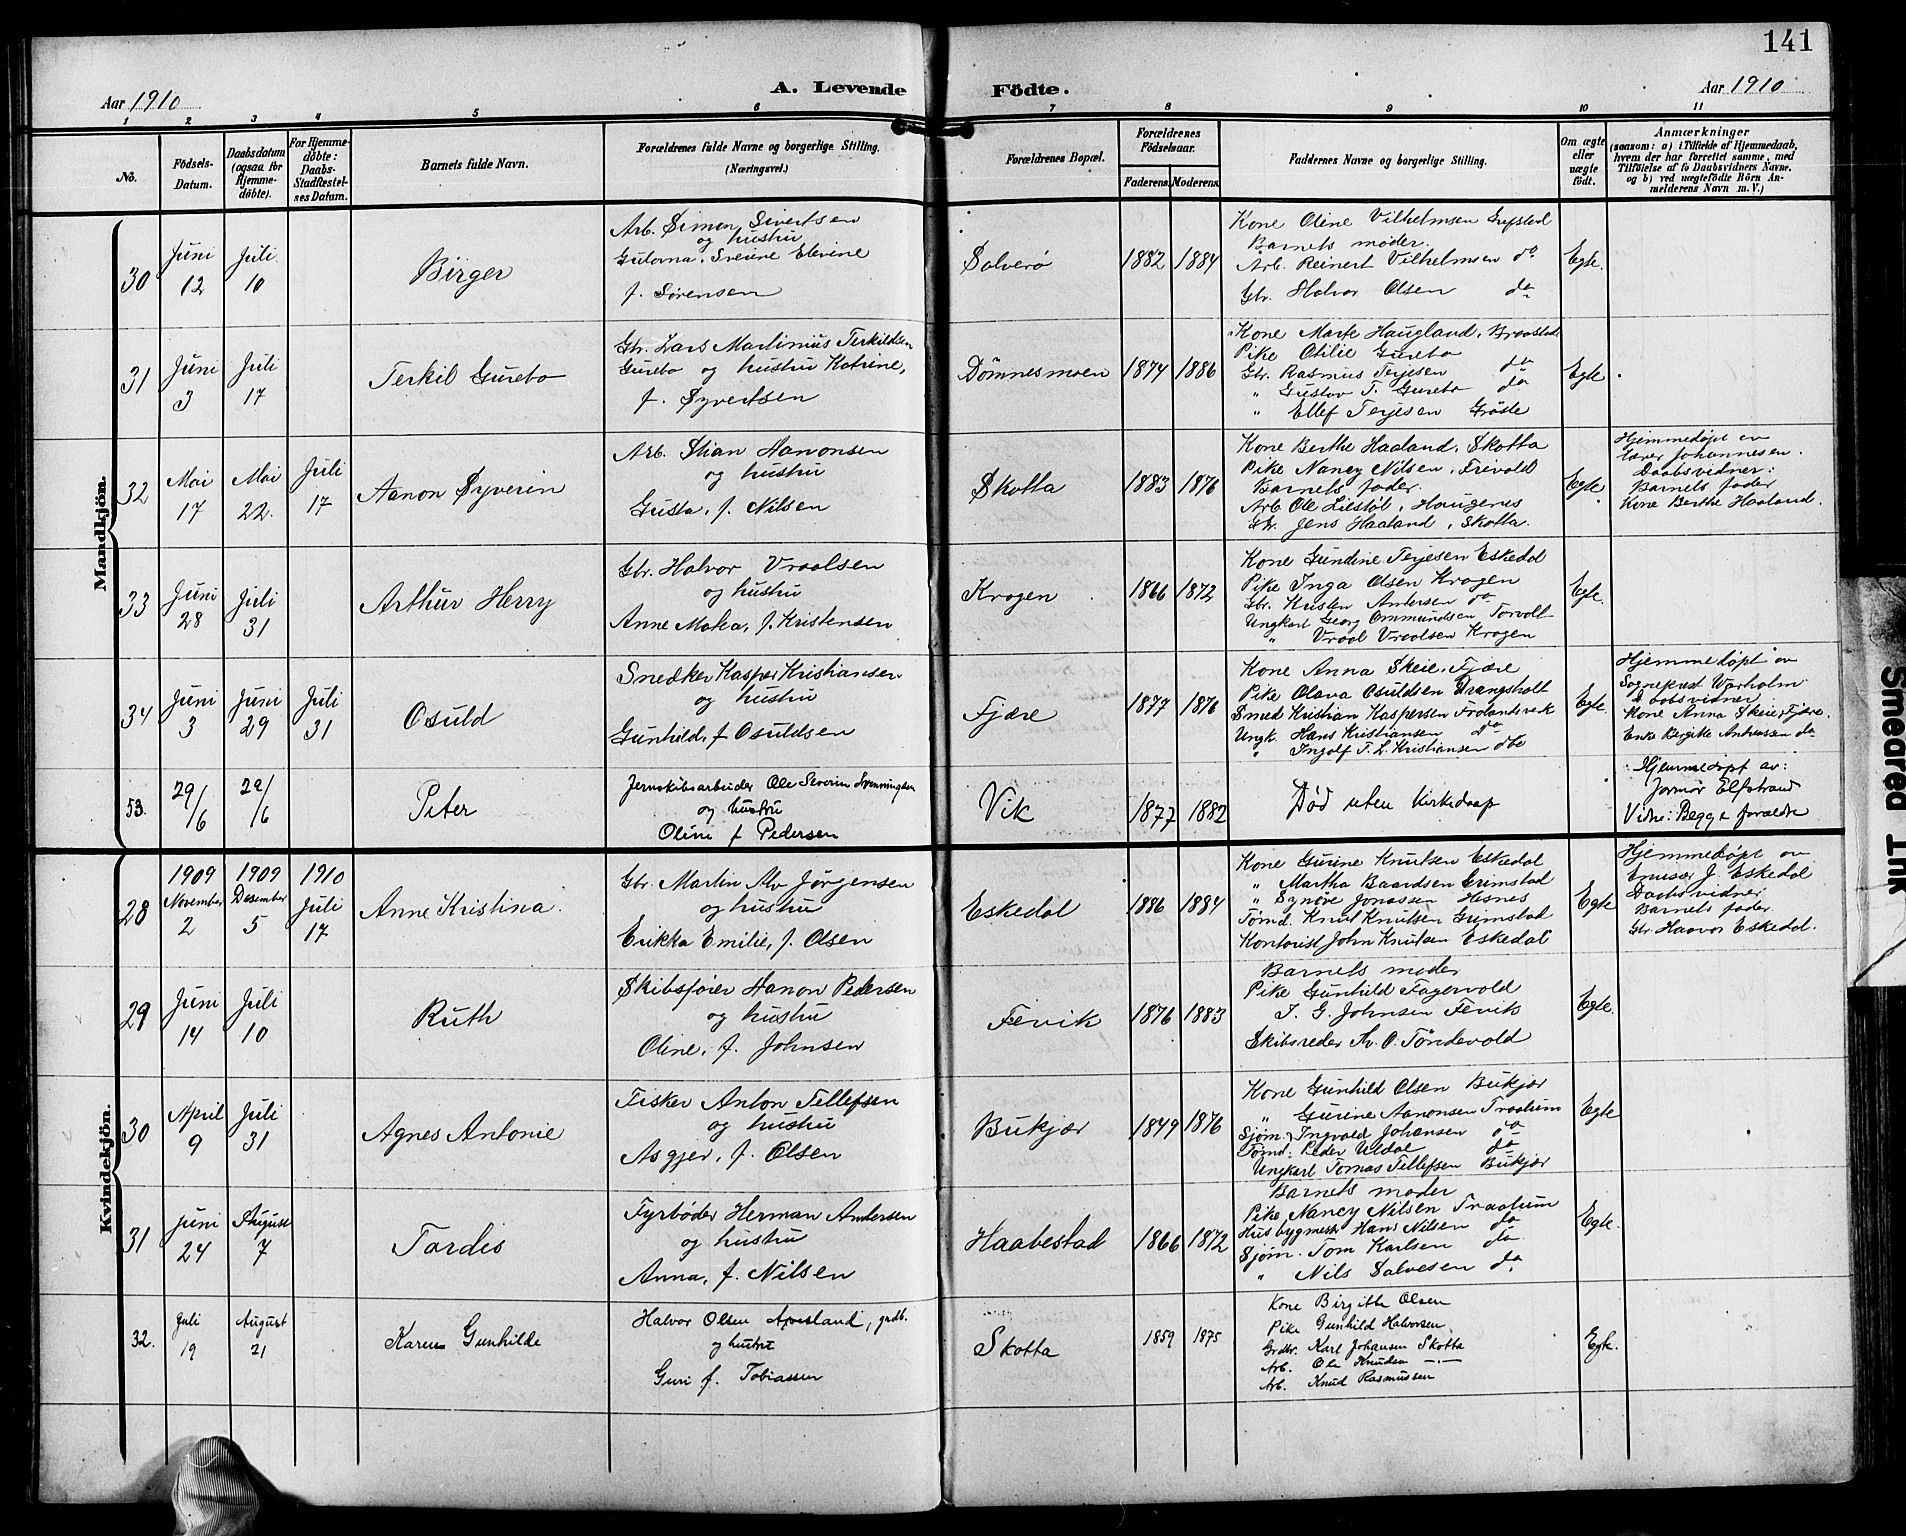 141
Aar 1910
A. Levende Födte.
Aar 1910
1 2 3 4 5 6 7 8 9 10 11
No.
Födsels-
Datum.
Daabsdatum
(ogsaa for
Hjemme-
döbte).
For Hjemme-
döbte:
Daabs-
Stadfæstel-
ses Datum.
Barnets fulde Navn.
Forældrenes fulde Navne og borgerlige Stilling.
(Næringsvei.)
Forældrenes Bopæl.
Forældrenes
Födselsaar.
Faderens. Moderens.
Faddernes Navne og borgerlige Stilling.
Om ægte
eller
uægte
födt.
Anmærkninger
(saasom: a) i Tilfælde af Hjemmedaab,
hvem der har forrettet samme, med
Tilföielse af to Daabsvidners Navne,
og b) ved uægtefödte Börn An-
melderens Navn m. V.)
Mandkjön.
30
Juni
12
Juli
10
Birger
Arb. Simon Sivertsen
og hustru
Gulovna, Elevine
f. Sørensen
Salverö
1882 1884
Kone Oline Vilhelmsen
Barnets moder.
Arb. Reinert Vilhelmsen do
Gbr. Halvor Olsen do
Egte.
31
Juni
3
Juli
17
Terkil Gurebo
Gbr. Lars Martinius Terkildsen
Gurebo og hustru Katrine,
f. Syvertsen
Dömnesmoen
1874 1886
Kone Marte Haugland, Braastad
Pike Otilie Gurebo
Gbr. Rasmus Terjesen do
" Gustav T. Gurebo do
" Ellef Terjesen Gröste
Egte.
32
Mai
17
Mai
22.
Juli
17
Aanon Syverin
Arb. Stian Aanonsen
og hustru
Gusta, f. Nilsen
Skotta
1883 1876
Kone Berthe Haaland, Skotta
Pike Nancy Nilsen, Frivold
Barnets fader.
Arb. Ole Liestøl, Haugenes
Gbr. Jens Haaland, Skotta.
Egte.
Hjemmedöpt av
Johannesen.
Daabsvidner:
Barnets fader
Kone Berthe Haaland.
33
Juni
28
Juli
31
Arthur Herry
Gbr. Halvor Vraalsen
og hustru
Anne , f. Kristensen
Krogen
1866 1872
Kone Gundine Terjesen Eskedal
Pike Inga Olsen Krogen
Gbr. Kristen Andersen do
Ungkarl Georg Ommundsen Torvolt
" Vraal Vraalsen Krogen
Egte.
34
Juni
3
Juni
29
Juli
31
Osuld
Snedker Kasper Kristiansen
og hustru
Gunhild, f Osuldsen
Fjære
1877 1876
Kone Anna Skeie, Fjære
Pike Olava Osuldsen Drangsholt
Smed Kristian Kaspersen Frolandsvek
Ungk. Hans Kristiansen do
" Ingolf T. L. Kristiansen do
Egte.
Hjemmedöpt av
Sogneprest Warholm
Daabsvidner
Kone Anna Skeie, Fjære.
Enke Bergitte Andreassen do
53.
29/6
29/6
Peter
Jernskibsarbeider Ole Severin Svenningsen
og hustru
Oline f Pedersen
Vik
1877 1882
Död uten kirkedaap
Hjemmedöpt av:
Jormor Elfstrand
Vidne: Begge forældre
Kvindekjön.
28
1909
November
2
1909
Desember
5
1910
Juli
17
Anne Kristina.
Gbr. Martin Alv Jörgensen
og hustru
Erikka Emilie, f. Olsen
Eskedal
1886 1884
Kone Gurine Knutsen Eskedal
" Martha Baardsen Grimstad
" Synöve Jonassen Hesnes
Tømd. Knut Knutsen Grimstad
Kontorist John Knutsen Eskedal
Egte
Hjemmedöpt av
J. Eskedal
Daabsvidner
Barnets fader
Gbr. Haavor Eskedal.
29
Juni
14
Juli
10
Ruth
Skibsförer Aanon Pedersen
og hustru
Oline, f. Johnsen
Fevik
1876 1883
Barnets moder
Pike Gunhild Fagervold
J. G. Johnsen Fevik
Skibsreder Av. O. Töndevold
Egte.
30
April
9
Juli
31
Agnes Antonie
Fisker Anton Tellefsen
og hustru
Asgjer, f. Olsen
Bukjær
1849 1876
Kone Gunhild Olsen Bukjær
" Gurine Aanonsen Traalum
Sjøm. Ingvald Johansen do
Tømd. Peder Uldal do
Ungkarl Tomas Tellefsen Bukjær
Egte
31
Juni
24
August
7
Tordis
Fyrböder Herman Andersen
og hustru
Anna, f. Nilsen
Haabestad
1866 1872
Barnets moder
Pike Nancy Nilsen Traalum
Husbygmestr. Hans Nilsen do
Sjøm. Tom Karlsen do
" Nils Salvesen do
Egte.
32.
Juli
19
August
21
Karen Gunhilde
Halvor Olsen Aresland, grdb.
og hustru
Guri f. Tobiassen
Skotta
1859 1875
Kone Birgitte Olsen
Pike Gunhild Halvorsen
Grdbr. Karl Johansen Skotta
Arb. Ole Knudsen —"—
Arb. Knud Rasmussen
Egte.
Smeared Ink